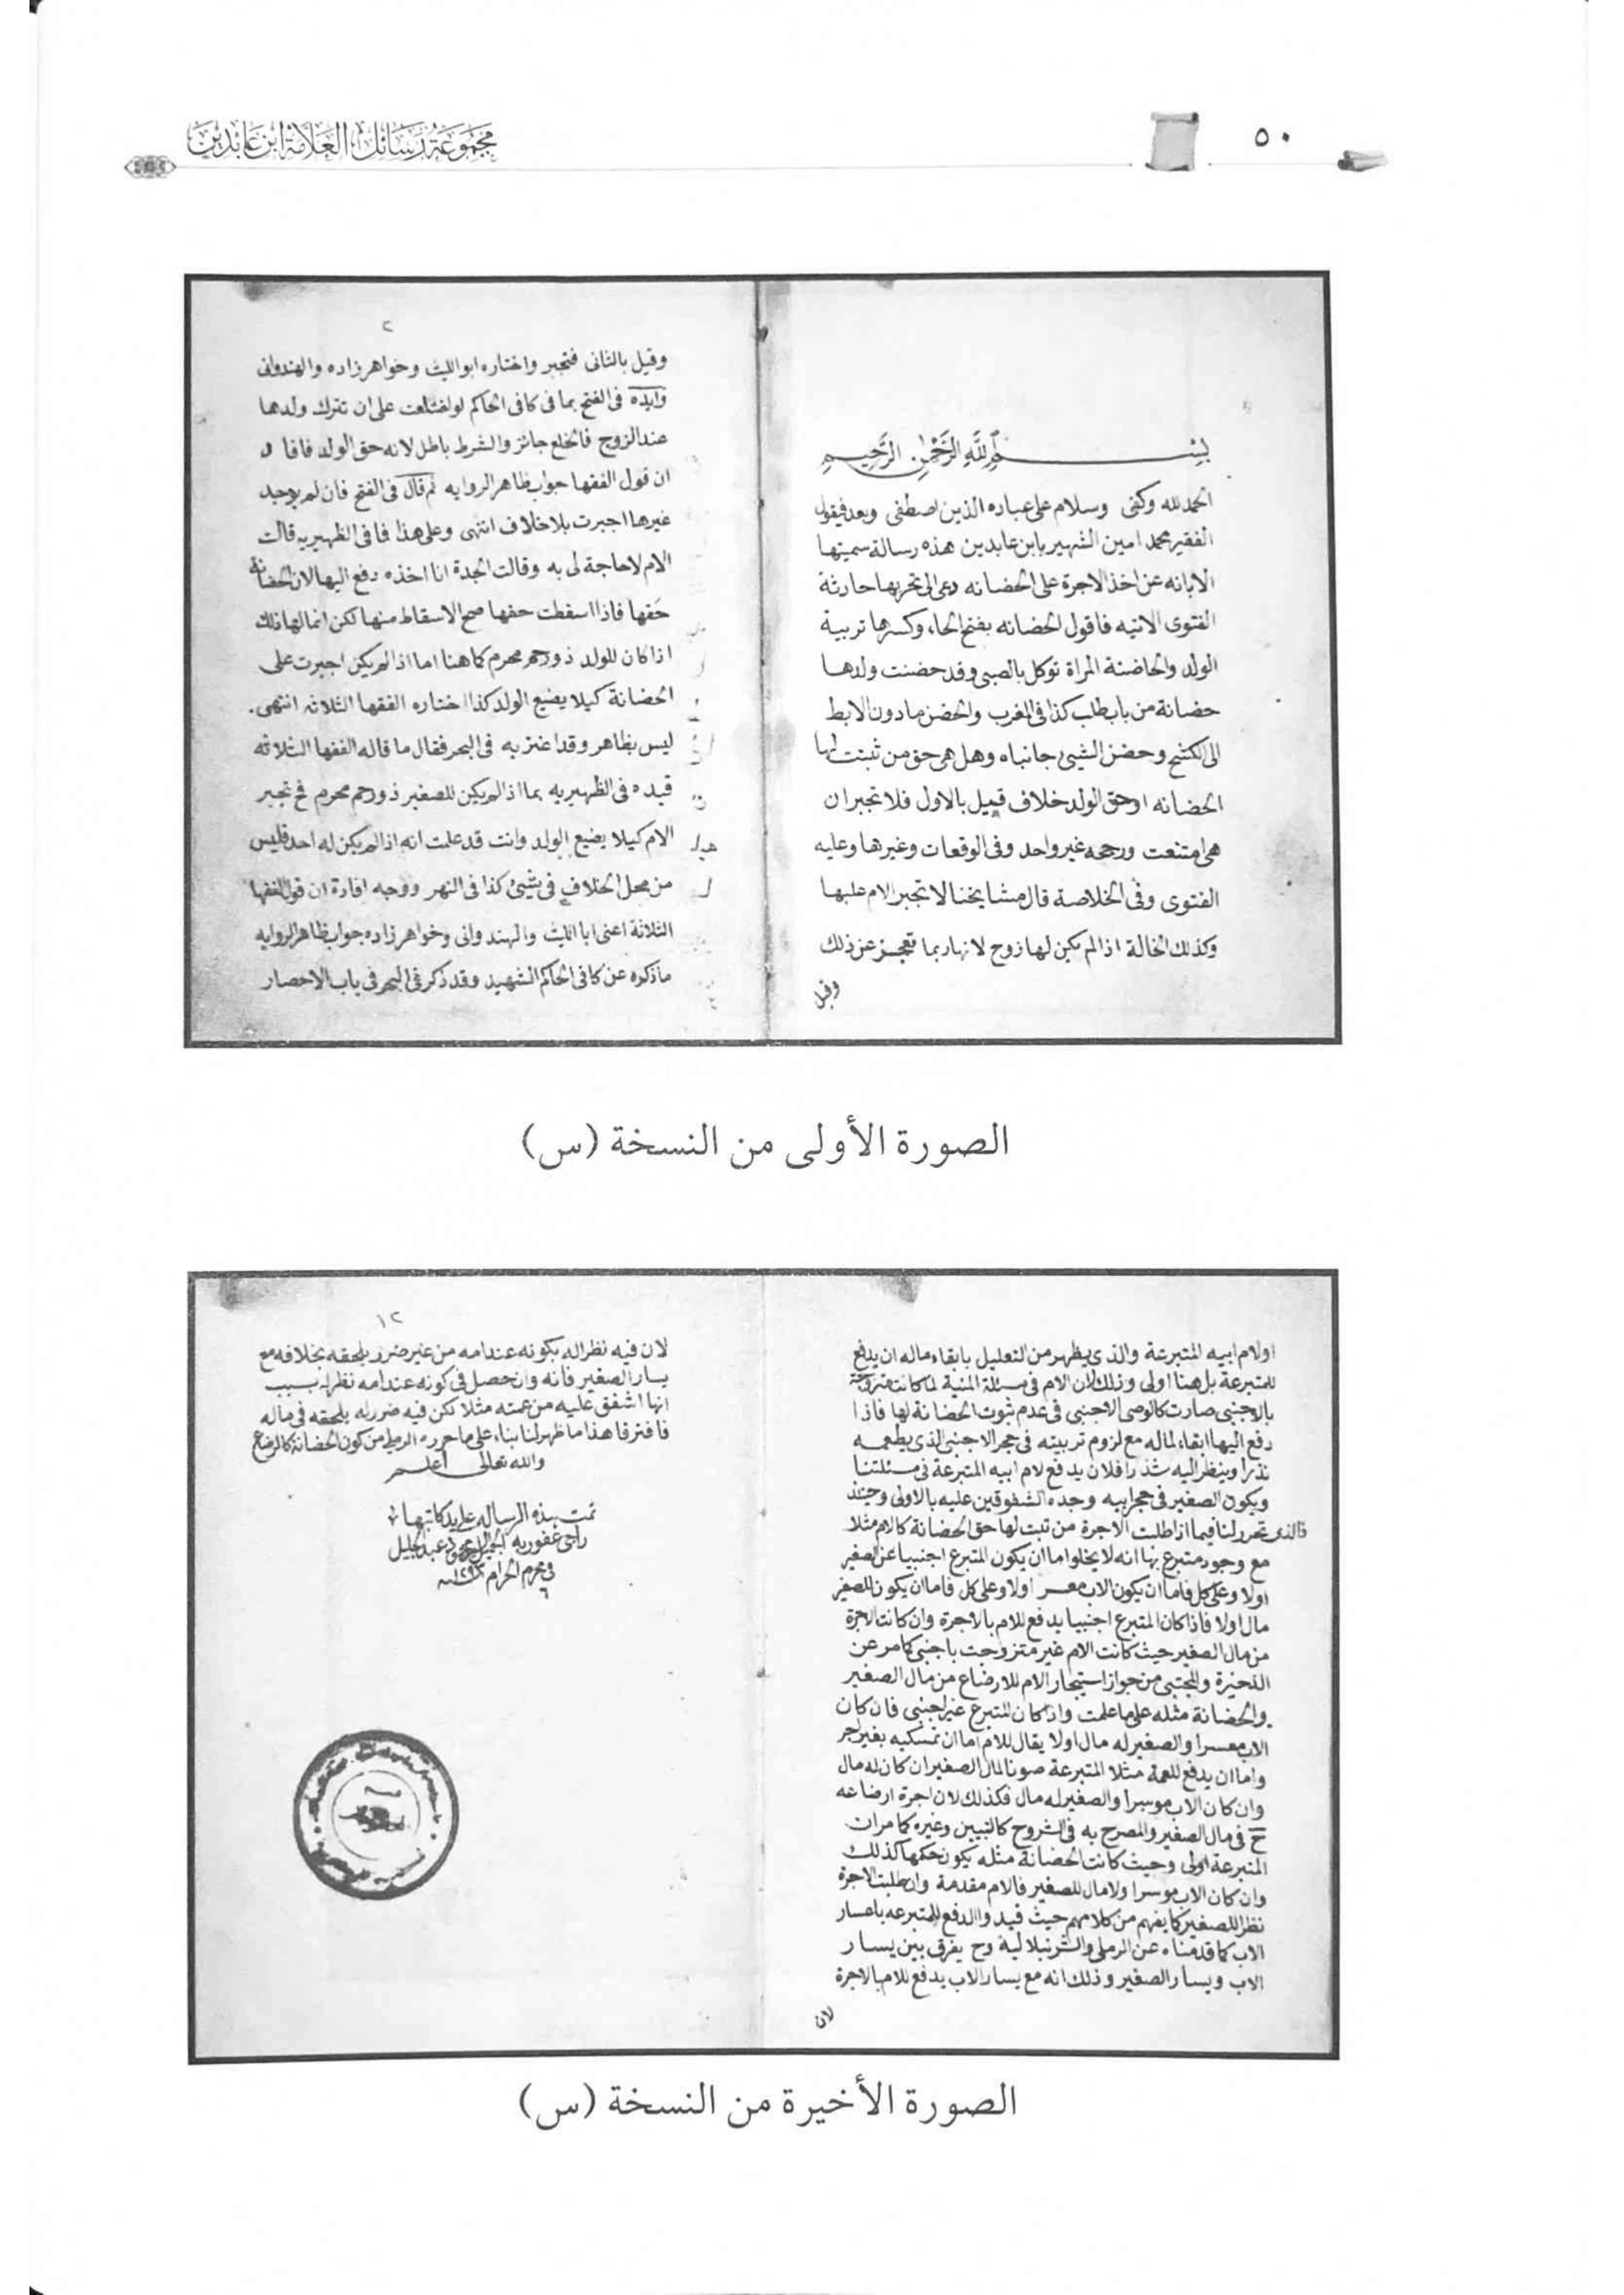 ٥٠
مجموعة رسائل العلامة ابن عابدين
بسم الله الرحمن الرحيم
الحمد لله وكفى وسلام على عباده الذين اصطفى وبعد فيقول
الفقير محمد امين الشهير بابن عابدين هذه رسالة سميتها
الابانه عن اخذ الاجرة على الحضانه دعى الى تحريرها حادثة
الفتوى الاتيه فاقول الحضانه بفتح الحاء وكسرها تربية
الولد والحاضنة المراة توكل بالصبي وقد حضنت ولدها
حضانة من باب طلب كذا فى المغرب والحضن مادون الابط
الى الكشح وحضن الشيئ جانباه وهل هى حق من ثبتت لها
الحضانه او حق الولد خلاف قيل بالاول فلا تجبر ان
هى امتنعت ورجحه غير واحد وفى الوقعات وغيرها وعليه
الفتوى وفى الخلاصة قال مشايخنا لا تجبر الام عليها
وكذلك الخالة اذا لم يكن لها زوج لانها ربما تعجز عن ذلك
وقيل
٢
وقيل بالثانى فتجبر واختاره ابو الليث وخواهر زاده والهندوانى
وايده فى الفتح بما فى كافى الحاكم لو اختلعت على ان تترك ولدها
عند الزوج فالخلع جائز والشرط باطل لانه حق الولد فافاد
ان قول الفقها جواب ظاهر الروايه ثم قال فى الفتح فان لم يوجد
غيرها اجبرت بلا خلاف انتهى وعلى هذا فما فى الظهيريه قالت
الام لا حاجة لى به وقالت الجدة انا اخذه دفع اليها لان الحضانة
حقها فاذا اسقطت حقها صح الاسقاط منها لكن انما لها ذلك
اذا كان للولد ذو رحم محرم كما هنا اما اذا لم يكن اجبرت على
الحضانة كيلا يضيع الولد كذا اختاره الفقها الثلاثه انتهى.
ليس بظاهر وقد اغتر به فى البحر فقال ما قاله الفقها الثلاثه
قيده فى الظهيريه بما اذا لم يكن للصغير ذو رحم محرم فح تجبر
الام كيلا يضيع الولد وانت قد علمت انه اذا لم يكن له احد فليس
من محل الخلاف فى شيئ كذا فى النهر ووجه افادة ان قول الفقها
الثلاثة اعنى ابا الليث والهندوانى وخواهر زاده جواب ظاهر الروايه
ماذكره عن كافى الحاكم الشهيد وقد ذكر فى البحر فى باب الاحصار
الصورة الأولى من النسخة (س)
او لام ابيه المتبرعة والذى يظهر من التعليل بابقاء ماله ان يدفع
للمتبرعة بل هنا اولى وذلك لان الام فى مسئلة المنية لما كانت متزوجة
بالاجنبى صارت كالوصى الاجنبى فى عدم ثبوت الحضانة لها فاذا
دفع اليها ابقاء لماله مع لزوم تربيته فى حجر الاجنبى الذى يطعمه
نذرا وينظر اليه شذرا فلان يدفع لام ابيه المتبرعة فى مسئلتنا
ويكون الصغير فى حجر ابيه وجده الشفوقين عليه بالاولى وحينئذ
فالذى تحرر لنا فيما اذا طلبت الاجرة من ثبت لها حق الحضانة كالام مثلا
مع وجود متبرع بها انه لا يخلوا اما ان يكون المتبرع اجنبيا عن الصغير
اولا وعلى كل فاما ان يكون الاب معسرا اولا وعلى كل فاما ان يكون للصغير
مال اولا فاذا كان المتبرع اجنبيا يدفع للام بالاجرة وان كانت الاجرة
من مال الصغير حيث كانت الام غير متزوجت باجنبى كما مر عن
الذخيرة والمجتبى من جواز استيجار الام للارضاع من مال الصغير
والحضانة مثله على ما علمت واذا كان المتبرع غير اجنبى فان كان
الاب معسرا والصغير له مال اولا يقال للام اما ان تمسكيه بغير اجر
واما ان يدفع للعمة مثلا المتبرعة صونا لمال الصغير ان كان له مال
وان كان الاب موسرا والصغير له مال فكذلك لان اجرة ارضاعه
ح فى مال الصغير والمصرح به فى الشروح كالتبيين وغيره كما مر ان
المتبرعة اولى وحيث كانت الحضانة مثله يكون حكمها كذلك
وان كان الاب موسرا ولا مال للصغير فالام مقدمة وان طلبت الاجرة
نظرا للصغير كما يفهم من كلامهم حيث قيدوا الدفع للمتبرعه باعسار
الاب كما قدمناه عن الرملى والشرنبلالية وح يفرق بين يسار
الاب ويسار الصغير وذلك انه مع يسار الاب يدفع للام بالاجرة
لان
١٢
لان فيه نظرا له بكونه عند امه من غير ضرر يلحقه بخلافه مع
يسار الصغير فانه وان حصل فى كونه عند امه نظر له بسبب
انها اشفق عليه من عمته مثلا لكن فيه ضرر له يلحقه فى ماله
فافترقا هذا ما ظهر لنا بناء على ما حرره الرملى من كون الحضانة كالرضاع
والله تعالى اعلم
تمت هذه الرساله على يد كاتبها
راجى عفو ربه الجليل محمود عبد الجليل
فى محرم الحرام
الصورة الأخيرة من النسخة (س)